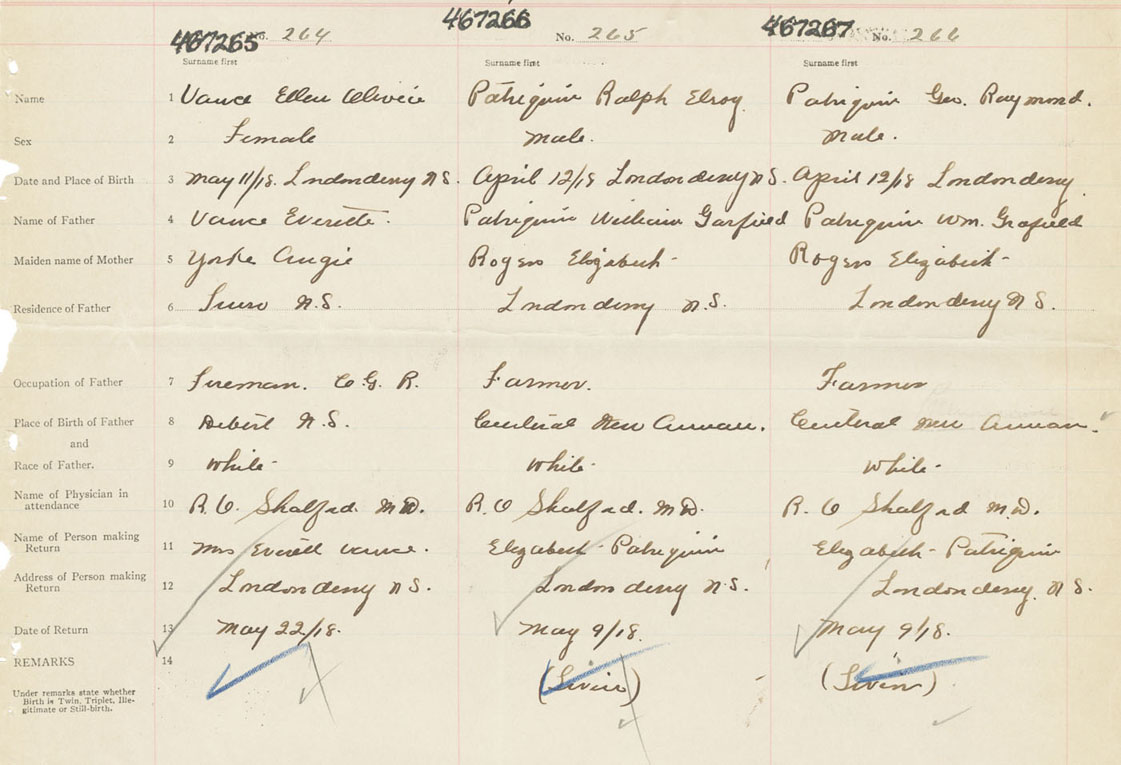 467265 No. 264 467266 No. 265 467267 No. 266
Surname first Surname first Surname first
Name 1 Vance Ellen Olivia Patriquin Ralph Elroy Patriquin Geo. Raymond.
Sex 2 Female Male. Male.
Date and Place of Birth 3 May 11/18. Londonderry N S. April 12/18 Londonderry N S. April 12/18 Londonderry
Name of Father 4 Vance Everette. Patriquin William Garfield Patriquin Wm. Grafield
Maiden name of Mother 5 Yorke Angie Rogers Elizabeth Rogers Elizabeth
Residence of Father 6 Truro N.S. Londonderry N.S. Londonderry N S.
Occupation of Father 7 Fireman. C. G. R. Farmer. Farmer
Place of Birth of Father 8 Debert N.S. Central New Annan. Central New Annan.
and
Race of Father. 9 White White White
Name of Physician in attendance 10 R. O. Shatford. M.D. R. O Shatford. M D. R. O Shatford M.D.
Name of Person making Return 11 Mrs Everett Vance. Elizabeth Patriquin Elizabeth Patriquin
Address of Person making Return 12 Londonderry N S. Londonderry N S. Londonderry. N S.
Date of Return 13 May 22/18. May 9/18. May 9/18.
REMARKS 14 (Twin) (Twin)
Under remarks state whether
Birth is Twin, Triplet, Ille-
gitimate or Still-birth.